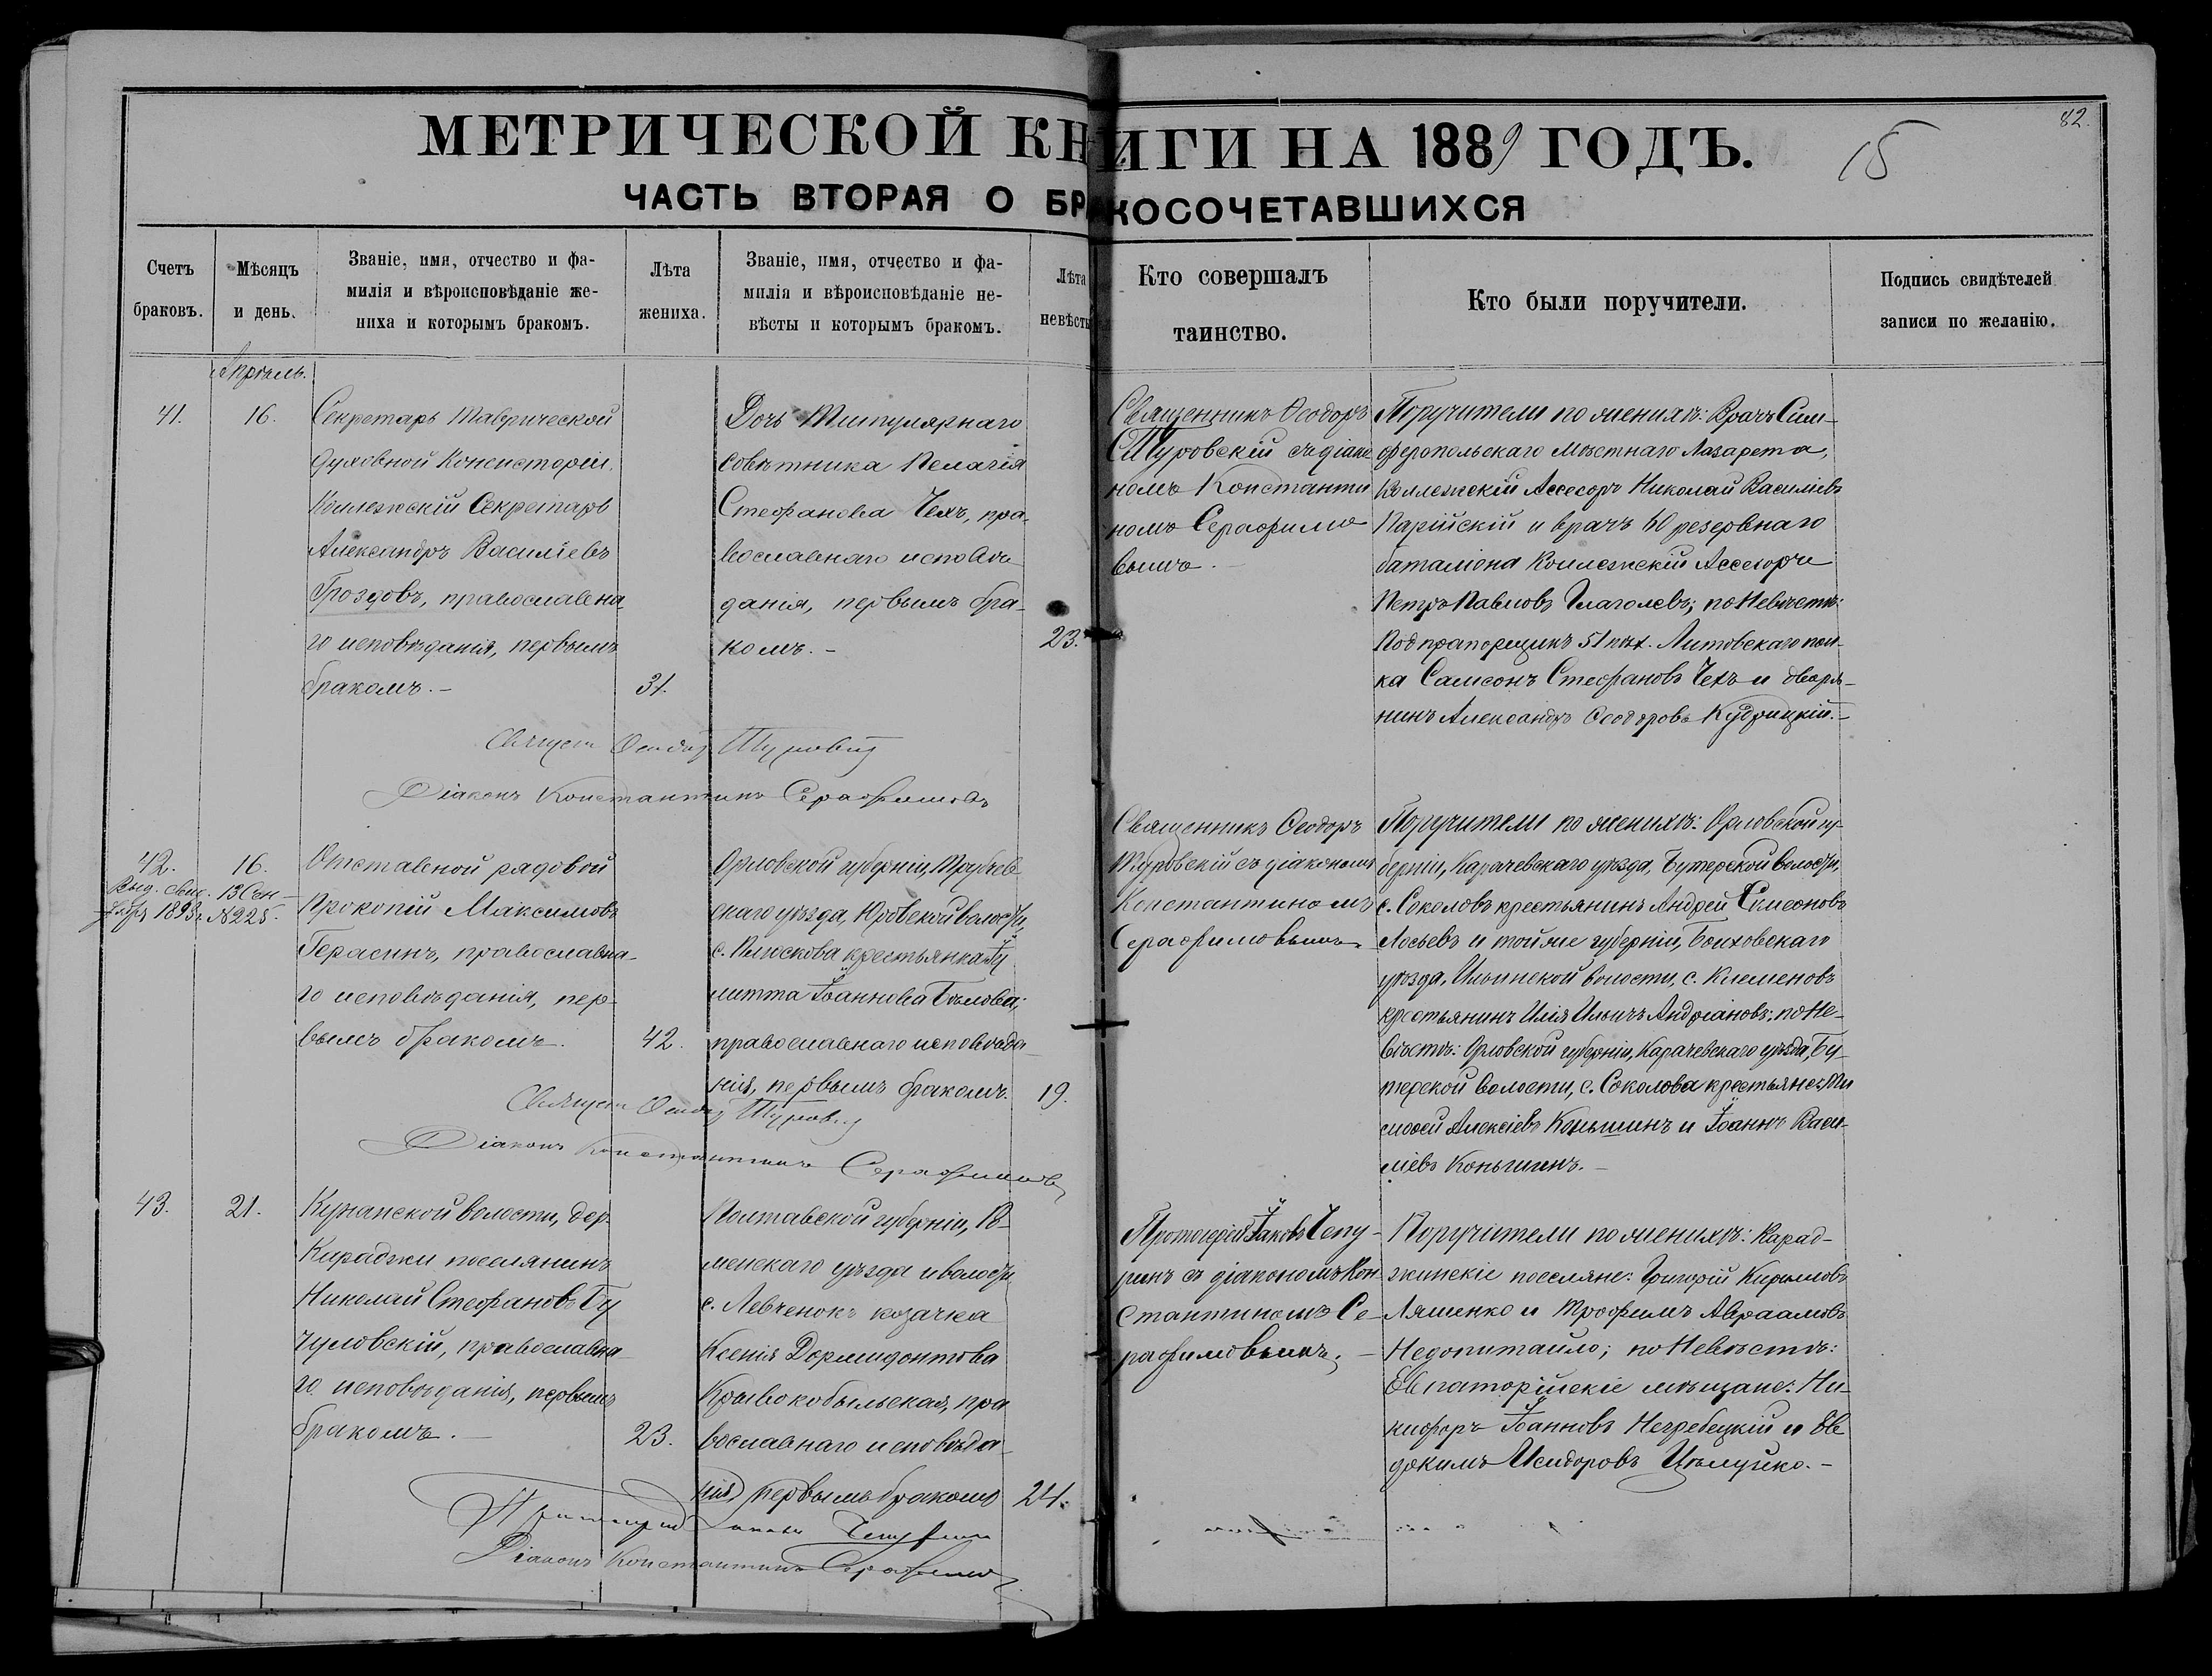 82.
МЕТРИЧЕСКОЙ КНИГИ НА 1889 ГОДЪ.
15
ЧАСТЬ ВТОРАЯ О БРАКОСОЧЕТАВШИХСЯ
Счетъ
браковъ.
Мѣсяцъ
и день.
Званіе, имя, отчество и фа-
милія и вѣроисповѣданіе же-
ниха и которымъ бракомъ.
Лѣта
жениха.
Званіе, имя, отчество и фа-
милія и вѣроисповѣданіе не-
вѣсты и которымъ бракомъ.
Лѣта
невѣсты
Кто совершалъ
таинство.
Кто были поручители.
Подпись свидѣтелей
записи по желанію.
Апрѣль.
41.
16.
Секретарь Таврической
Духовной Консисторіи,
Коллежскій Секретарь
Александръ Василіевъ
Гроздовъ, православна
го исповѣданія, первымъ
бракомъ.-
31.
Дочь Титулярнаго
совѣтника Пелагія
Стефанова Чехъ, пра-
вославнаго исповѣ-
данія, первымъ бра-
комъ.-
23.
Священникъ Ѳеодоръ
Туровскій съ діако
номъ Константи
номъ Серафимо
вымъ.
Поручители по женихѣ: Врачъ Сим-
феропольскаго Мѣстнаго Лазарета,
Коллежскій Ассесоръ Николай Василіевъ
Парійскій и врачъ 60 резервнаго
баталіона Коллежскій Ассесоръ
Петръ Павловъ Глаголевъ; по Невѣстѣ:
Подпрапорщикъ 51 пѣх. Литовскаго пол-
ка Самсонъ Стефановъ Чехъ и дворя-
нинъ Александръ Ѳеодоровъ Кудрицкій.-
Священ Ѳеодоръ Туровскій
Діаконъ Константинъ Серафимовъ
42.
Выд. свид. 13 Сен-
тября 1893 г. №225.
16.
Отставной рядовой
Прокопій Максимовъ
Герасинъ, православна-
го исповѣданія, пер-
вымъ бракомъ.
42.
Орловской губерніи, Трубчев-
скаго уѣзда, Юровской волости,
с. Плюскова крестьянка Іу
литта Іоаннова Бѣлова;
православнаго исповѣда-
нія, первымъ бракомъ.
19.
Священникъ Ѳеодоръ
Туровскій съ діакономъ
Константиномъ
Серафимовымъ
Поручители по женихѣ: Орловской гу-
берніи, Карачевскаго уѣзда, Бутерской волости,
с. Соколовъ крестьянинъ Андрей Симеоновъ
Лосьевъ и той же губерніи, Болховскаго
уѣзда, Ильинской волости, с. Клеменовъ
крестьянинъ Илія Ильичъ Андріановъ; по Не-
вѣстѣ: Орловской губерніи, Карачевскаго уѣзда, Бу-
терской волости, с. Соколова крестьяне: Ти
моѳей Алексіевъ Коньшинъ и Іоаннъ Васи-
ліевъ Коньшинъ.-
Священ Ѳеодоръ Туровскій
Діаконъ Константинъ Серафимовъ
43.
21.
Кунанской волости, дер.
Караджи поселянинъ
Николай Стефановъ Бу
чуловскій, православна-
го исповѣданія, первымъ
бракомъ.-
23.
Полтавской губерніи, Ро-
менскаго уѣзда и волости
с. Левченокъ козачка
Ксенія Дормидонтова
Кривокобыльская, пра
вославнаго исповѣда-
нія, первымъ бракомъ
24.
Протоіерей Іаковъ Чепу-
ринъ съ діакономъ Кон
стантиномъ Се-
рафимовымъ.-
Поручители по женихѣ: Карад-
жинскіе поселяне: Григорій Кирилловъ
Ляшенко и Трофимъ Авраамовъ
Недопитайло; по Невѣстѣ:
Евпаторійскіе мѣщане: Ни-
кифоръ Іоанновъ Негребецкій и Ев
докимъ Исидоровъ Цѣлуйко.-
Протоіерей Іаковъ Чепуринъ
Діаконъ Константинъ Серафимовъ